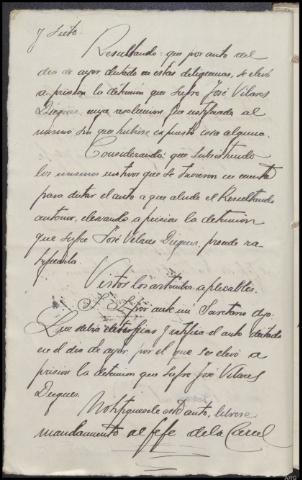 y siete.
Resultando: que por auto del
dia de ayer dictado en estas diligencias, se elevó
a prision la detencion que sufre José Vilares
Dieguez, cuya resolucion fue notificada al
mismo sin que hubiere expuesto cosa alguna.
Considerando: que subsistiendo
los mismos motivos que se tuvieron en cuenta
para dictar el auto a que alude el Resultando
anterior, elevando a prision la detencion
que sufre José Vilares Dieguez, procede ra-
tificarla.
Vistos los articulos aplicables.
S. Sª por ante mi Secretario dijo:
Que debia ratificar y ratifica el auto dictado
en el dia de ayer por el que se elevó a
prision la detencion que sufre José Vilares
Dieguez.
Notifiquese este auto, librese
mandamiento al Jefe de la Carcel